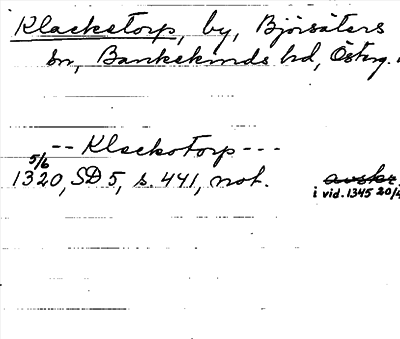 Klackstorp, by, Björsäters
sn, Bankekinds hd, Österg.
-- Klackotorp ---
5/6
1320, SD 5, s. 441, not. avskr.
i vid. 1345 20/4